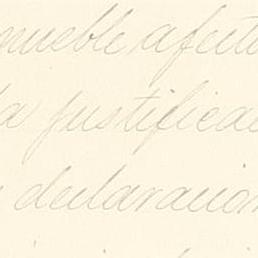 mueble afecto
la justificac
declaracion